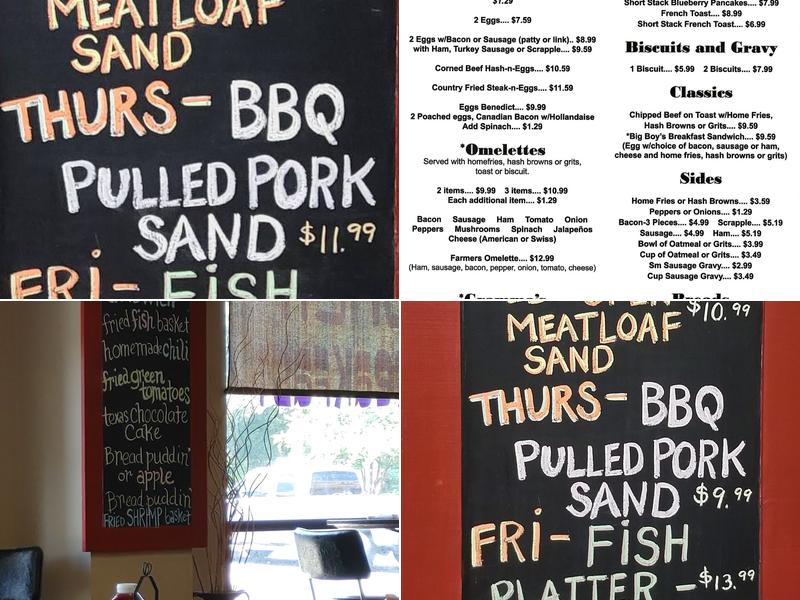 MEATLOAF
SAND
THURS- BBQ
PULLED PORK
SAND $11.99
FRI- FISH
$1.29
2 Eggs.... $7.59
2 Eggs w/Bacon or Sausage (patty or link).. $8.99
with Ham, Turkey Sausage or Scrapple.... $9.59
Corned Beef Hash-n-Eggs.... $10.59
Country Fried Steak-n-Eggs.... $11.59
Eggs Benedict.... $9.99
2 Poached eggs, Canadian Bacon w/Hollandaise
Add Spinach.... $1.29
*Omelettes
Served with homefries, hash browns or grits,
toast or biscuit.
2 items.... $9.99 3 items.... $10.99
Each additional item.... $1.29
Bacon Sausage Ham Tomato Onion
Peppers Mushrooms Spinach Jalapeños
Cheese (American or Swiss)
Farmers Omelette.... $12.99
(Ham, sausage, bacon, pepper, onion, tomato, cheese)
*Gramma's
Short Stack Blueberry Pancakes.... $7.99
French Toast.... $8.99
Short Stack French Toast.... $6.99
Biscuits and Gravy
1 Biscuit.... $5.99 2 Biscuits.... $7.99
Classics
Chipped Beef on Toast w/Home Fries,
Hash Browns or Grits.... $9.59
*Big Boy's Breakfast Sandwich.... $9.59
(Egg w/choice of bacon, sausage or ham,
cheese and home fries, hash browns or grits)
Sides
Home Fries or Hash Browns.... $3.59
Peppers or Onions.... $1.29
Bacon-3 Pieces.... $4.99 Scrapple.... $5.19
Sausage.... $4.99 Ham.... $5.19
Bowl of Oatmeal or Grits.... $3.99
Cup of Oatmeal or Grits.... $3.49
Sm Sausage Gravy.... $2.99
Cup Sausage Gravy.... $3.49
Breads
fried fish basket
homemade chili
fried green
tomatoes
texas chocolate
Cake
Bread puddin'
or apple
Bread puddin'
FRIED SHRIMP basket
OPEN $10.99
MEATLOAF
SAND
THURS- BBQ
PULLED PORK
SAND $9.99
FRI- FISH
PLATTER - $13.99